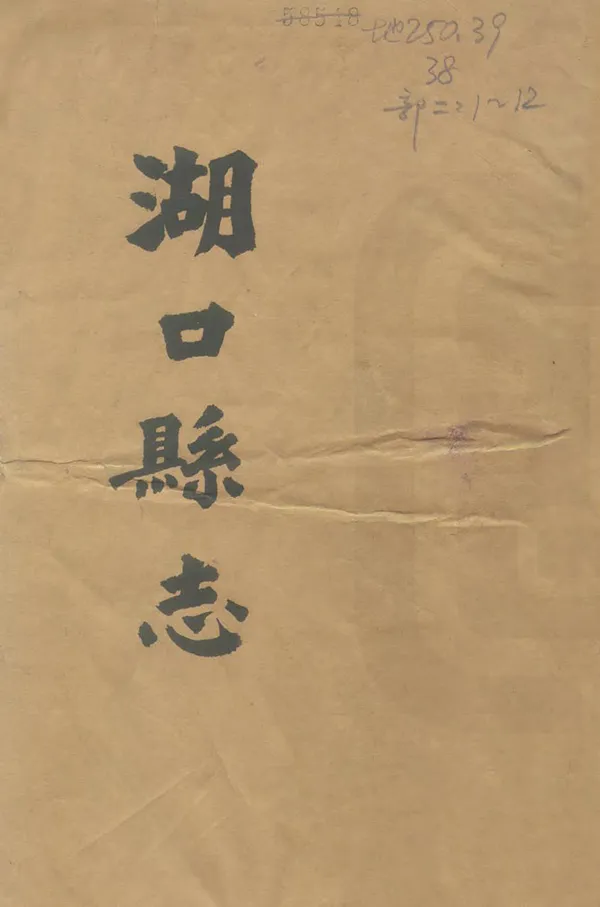 58518
地250.39
38
部二:1~12
湖口縣志